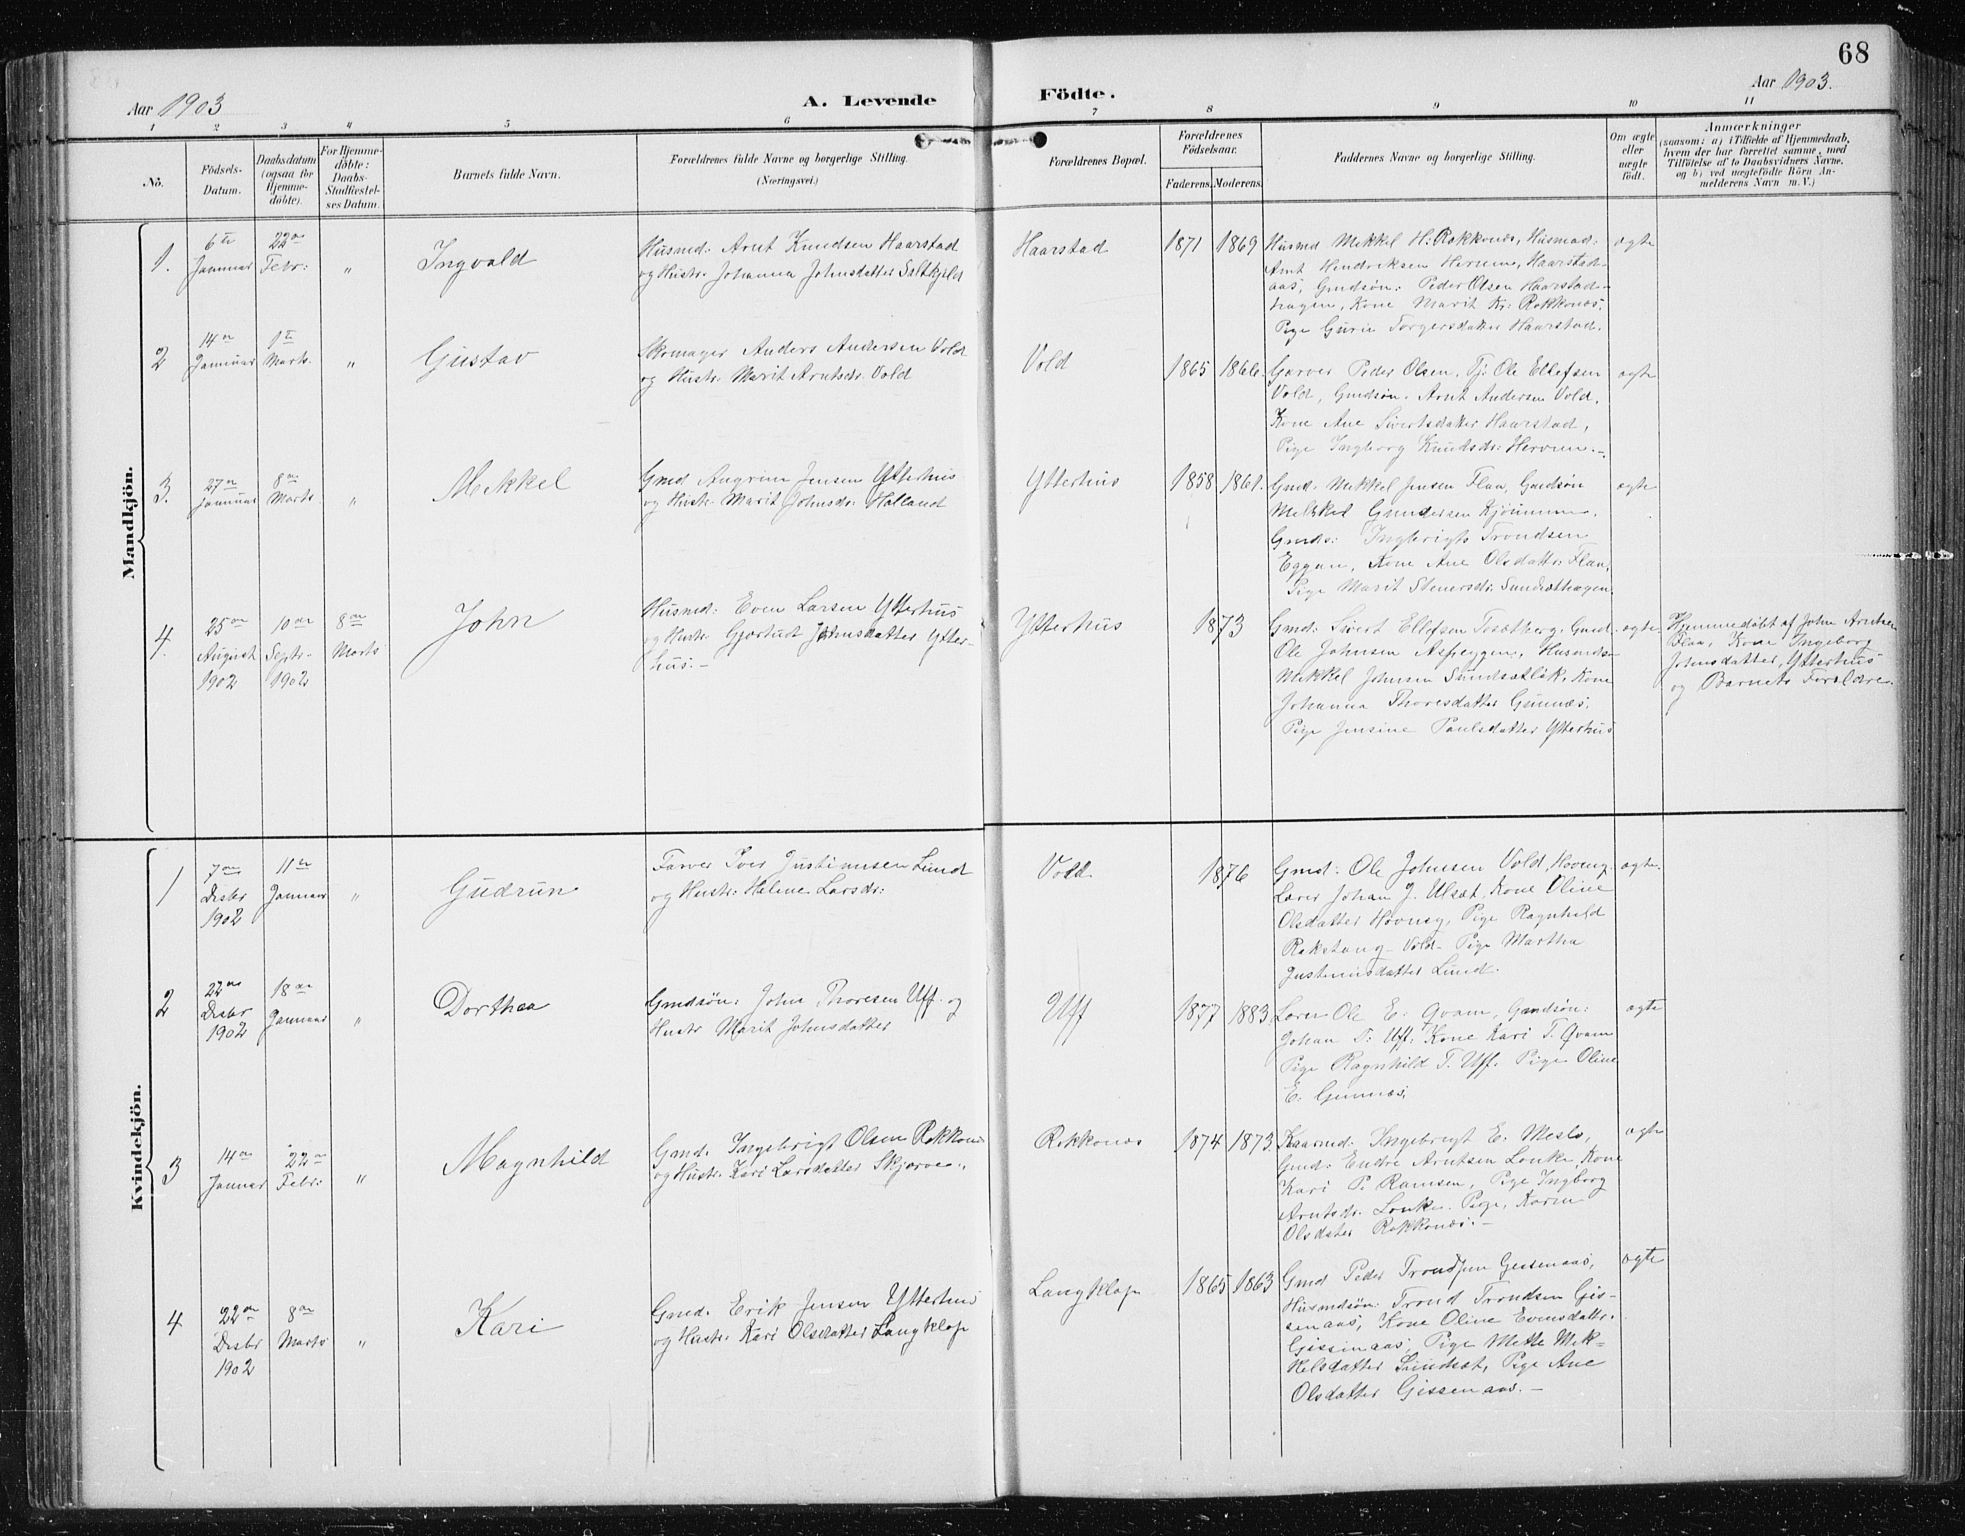 68
Aar 1903
A. Levende Födte.
Aar 1903.
1 2 3 4 5 6 7 8 9 10 11
No.
Födsels-
Datum.
Daabsdatum
(ogsaa for
Hjemme-
döbte).
For Hjemme-
döbte:
Daabs-
Stadfæstel-
ses Datum.
Barnets fulde Navn.
Forældrenes fulde Navne og borgerlige Stilling.
(Næringsvei.)
Forældrenes Bopæl.
Forældrenes
Födselsaar.
Faderens. Moderens.
Faddernes Navne og borgerlige Stilling.
Om ægte
eller
uægte
født.
Anmærkninger
(saasom: a) i Tilfælde af Hjemmedaab,
hvem der har forrettet samme, med
Tilföielse af to Daabsvidners Navne,
og b) ved uægtefödte Börn An-
melderens Navn m. V.)
Mandkjön.
1.
6te
Januar
22de
Febr:
"
Ingvald
Husmd: Arnt Knudsen Haarstad
og Hustr: Johanna Johnsdatter Saltkjeld
Haarstad
1871 1869
Husmd Mekkel H: Rokkones, Husmad:
Arnt Hendriksen Herume, Haarstad-
aas, Gmdsøn: Peder Olsen Haarstad-
hagen, Kone Marit Kr: Rokkones,
Pige Gurie Torgersdatter Haarstad.
ægte
2
14de
Januar
1te
Marts.
"
Gustav
Skomager Anders Andersen Vold
og Hustr. Marit Arntsdr. Vold
Vold
1865 1866.
Garver Peder Olsen, Tj: Ole Ellefsen
Vold, Gmdsøn. Arnt Andersen Vold,
Kone Ane Sivertsdatter Haarstad,
Pige Ingborg Knudsdr: Hervum.-
ægte
3.
27de
Januar
8de
Marts.
"
Mekkel
Gmd. Angrim Jensen Ytterhus
og Hustr. Marit Johnsdr: Halland
Ytterhus
1858 1861.
Gmd. Mekkel Jensen Flaa, Gmdsøn
Mekkel Gundersen Kjøsumme.
Gmds: Ingbrigt Trondsen
Eggen, Kone Ane Olsdattr: Flaa,
Pige Marit Stenersdr: Sundsethagen
ægte
4.
25de
August
1902
10de
Septr-
1902
8de
Marts
John
Husmd: Even Larsen Ytterhus
og Hustr. Gjertrud Johnsdatter Ytter-
hus.-
Ytterhus
1873
Gmd: Sivert Ellefsen Tosetberg, Gmd.
Ole Johnsen Aspeggen, Husmds-
Mekkel Johnsen Sundsetlik, Kone
Johanna Thoresdatter Gunnes,
Pige Jensine Paulsdatter Ytterhus
ægte
Hjemmedöbt af John Arntsen
Flaa, Kone Ingeborg
Johnsdatter, Ytterhus
og Barnets Forældre.
Kvindekjön.
1
7de
Desbr
1902
11te
Januar
"
Gudrun
Farver Iver Justinusen Lund
og Hustr: Helene Larsdr:
Vold
1876
Gmd: Ole Johnsen Vold, Hoveng.
Lærer Johan J. Ulset, Kone Oline
Olsdatter Hoveng, Pige Ragnhild
Rokstang- Vold- Pige Martha
Justinusdatter Lund.
ægte.
2
22de
Desbr
1902
18de
Januar
"
Dorthea
Gmdsøn: John Thoresen Uff. og
Hustr Marit Johnsdatter
Uff
1877 1883
Lærer Ole E: Qvam, Gmdsøn:
Johan T: Uff: Kone Kari T. Qvam
Pige Ragnhild T. Uff. Pige Oline
E. Gunnes.
ægte
3
14de
Januar
22de
Febr:
"
Magnhild
Gmd. Ingebrigt Olsen Rokkones
og Hustr: Kari Larsdatter Skjærve.
Rokkones
1874 1873
Kaarmd. Ingebrigt E. Meslo,
Gmd: Endre Arntsen Lonke, Kone
Kari P. Ramsen, Pige Ingborg
Arntsdr. Lonke. Pige, Karen
Olsdater Rokkones.-
ægte
4
22de
Desbr
1902
8de
Marts
"
Kari
Gmd. Erik Jensen Ytterhus
og Hustr: Kari Olsdatter Langklop
Langklop
1865 1863
Gmd Peder Trondsen Gissenaas,
Husmdsøn: Trond Trondsen Gis-
senaas, Kone Oline Evensdattr.
Gissenaas, Pige Mette Mek-
kelsdatter Sundset, Pige Ane
Olsdatter Gissenaas.-
ægte